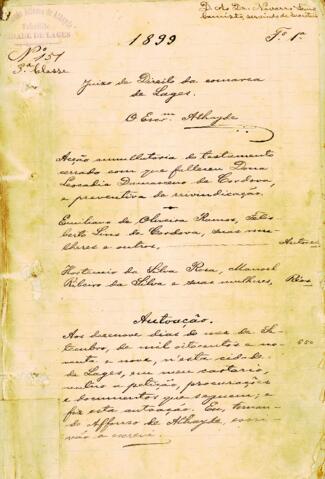 CIDADE DE LAGES
Nº 151
3ª Classe
D. A. Dr. Navarro Lins
servindo de
1899
Fº 1º
Juizo de Direito da comarca
de Lages.
O Escrm Athayde
Acção annullatoria de testamento
cerrado com que falleceu Dona
Leocadia Damasceno de Cordova,
e preventiva de reivindicação.
Emiliano de Oliveira Ramos, Felis
berto Lins de Cordova, suas mu
lheres e outros, Autores
da Silva Rosa, Manoel
Ribeiro da Silva e suas mulheres, Réos
Autoação.
Aos desenove dias do mez de Se
tembro, de mil oitocentos e no
venta e nove, n'esta cidade
de Lages, em meu cartorio,
autuo a petição, procurações
e documentos que seguem; e
fiz esta autoação. Eu, Fernan
do Affonso de Athayde, escri
vão o escrevi.